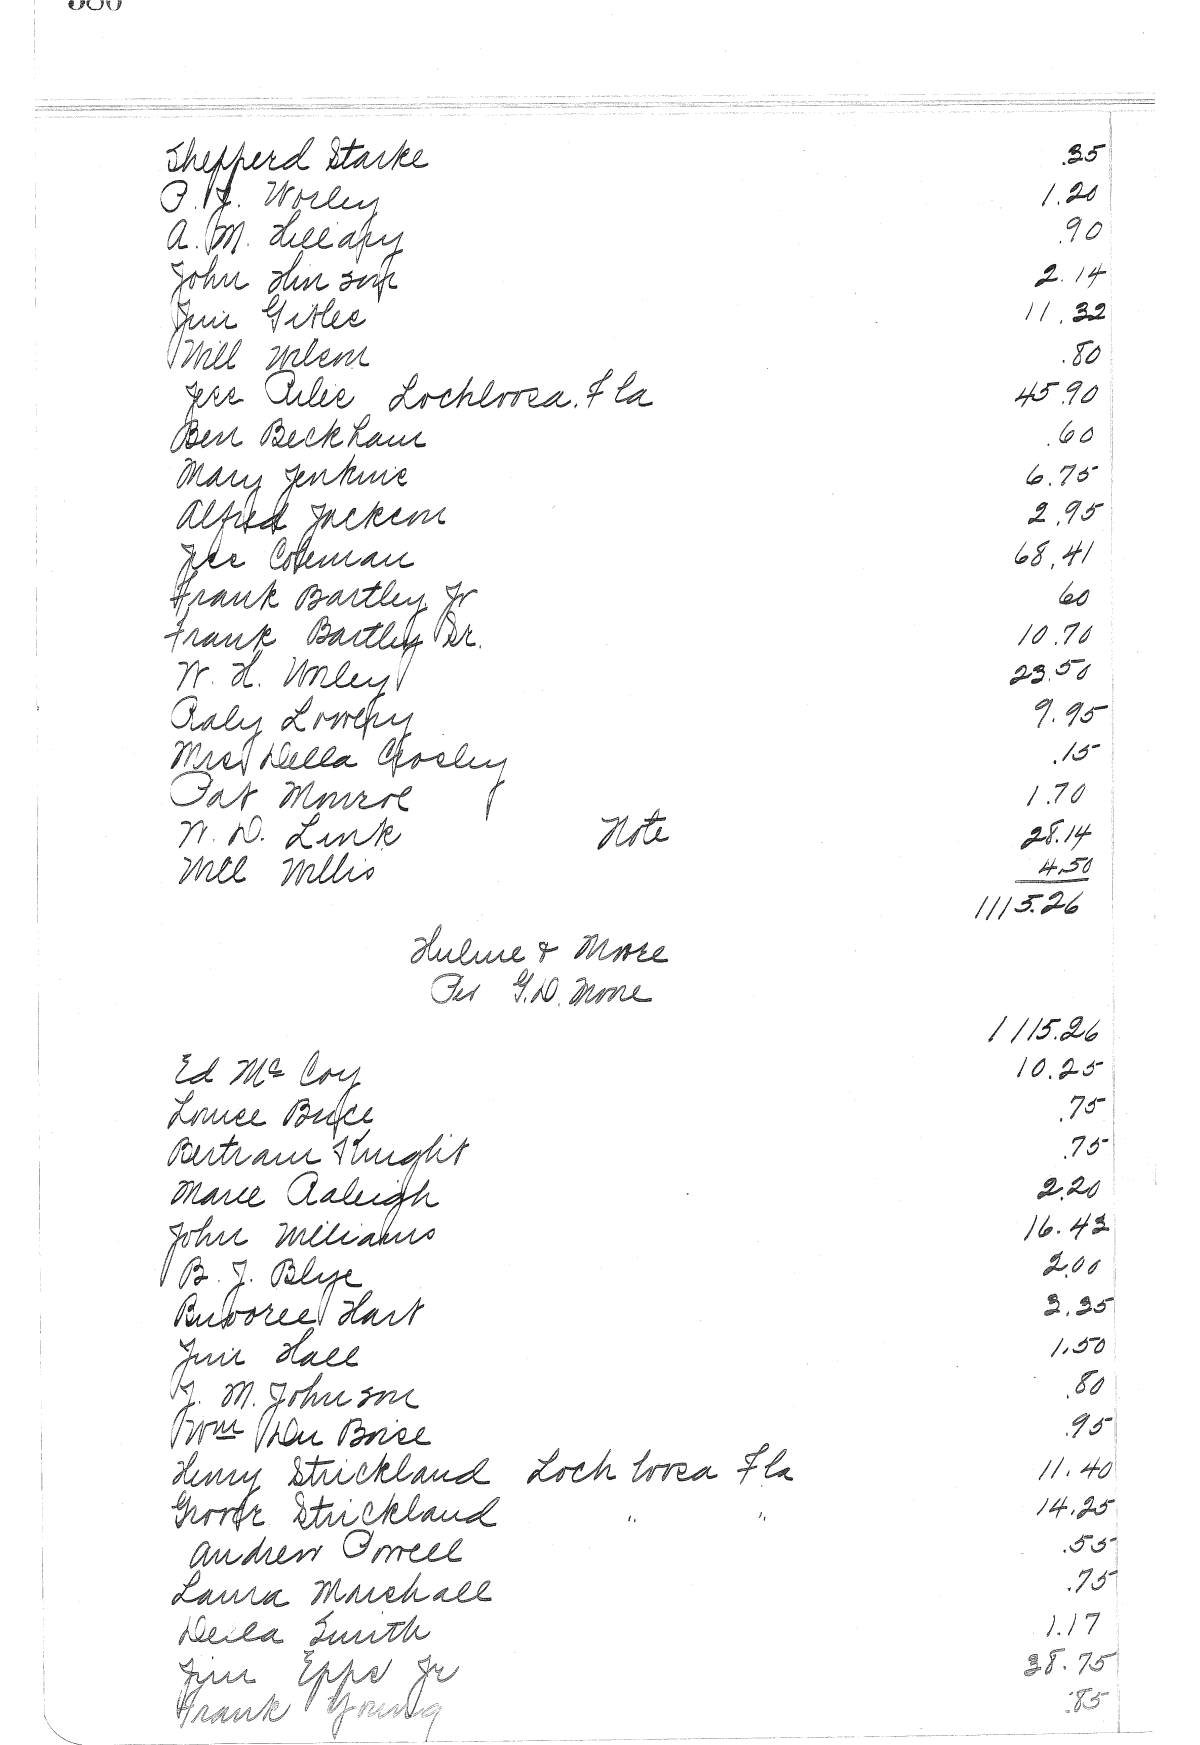 Shepperd Starke .35
P. J. Worley 1.20
A. M. Hillapy .90
John Hinson 2.14
Jim Gitles 11.32
Will Wilson .80
Jess Riles Lochloosa. Fla 45.90
Ben Beckham .60
Mary Jenkins 6.75
Alfred Jackson 2.95
Jess Coleman 68.41
Frank Bartley Jr 60
Frank Bartley Sr. 10.70
W. H. Worley 23.50
Raly Lowery 9.95
Mrs Della Crosley .15
Pat Monroe 1.70
W. D. Link Note 28.14
Will Willis 4.50
1115.26
Hulme & Moore
Per G.D. Moore
1115.26
Ed Mc Coy 10.25
Louise Brice .75
Bertram Knight .75
Marie Raleigh 2.20
John Williams 16.43
B. J. Blye 2.00
Hart 3.35
Jim Hall 1.50
J. M. Johnson .80
Wm Du Boise .95
Henry Strickland Lochloosa Fla 11.40
Grover Strickland " " 14.25
Andrew Powell .55
Laura Marshall .75
Della Smith 1.17
Jim Epps Jr 38.75
Frank Young .85